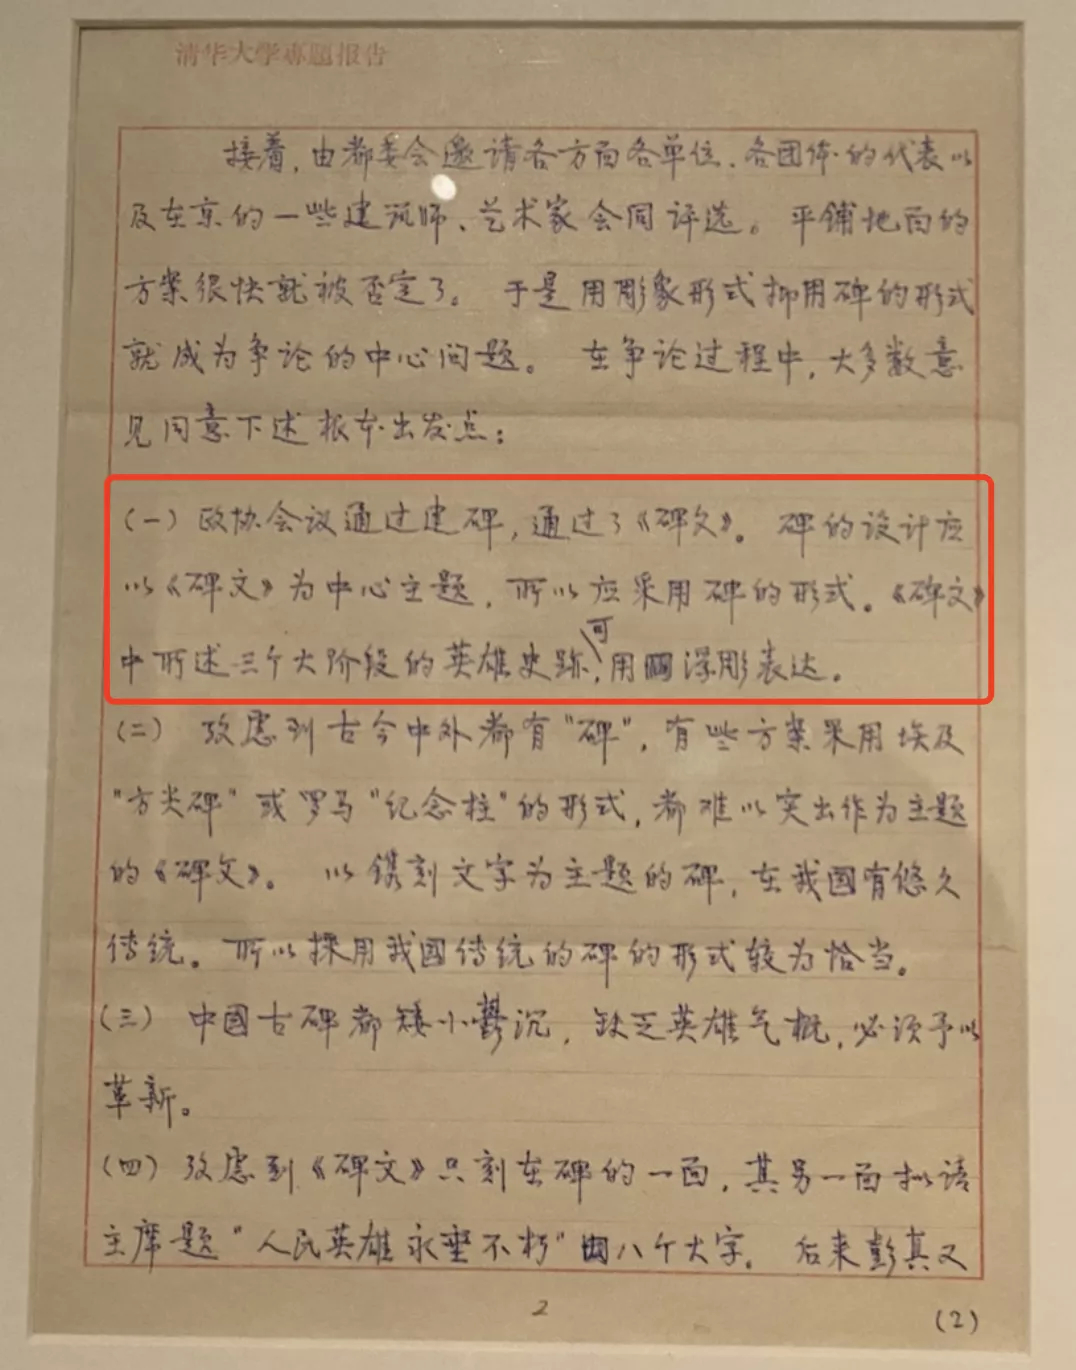 清华大学专题报告
接着，由都委会邀请各方面各单位、各团体的代表以
及在京的一些建筑师、艺术家会同评选。平铺地面的
方案很快就被否定了。于是用彫象形式抑用碑的形式
就成为争论的中心问题。在争论过程中，大多数意
见同意下述根本出发点：
(一) 政协会议通过建碑，通过了《碑文》。碑的设计应
以《碑文》为中心主题，所以应采用碑的形式。《碑文》
可
中所述三个大阶段的英雄史跡，用浮彫表达。
(二) 攷虑到古今中外都有“碑”，有些方案采用埃及
“方尖碑”或罗马“纪念柱”的形式，都难以突出作为主题
的《碑文》。以镌刻文字为主题的碑，在我國有悠久
传统。所以採用我國传统的碑的形式较为恰当。
(三) 中國古碑都矮小鬱沉，缺乏英雄气概，必须予以
革新。
(四) 攷虑到《碑文》只刻在碑的一面，其另一面拟请
主席题“人民英雄永垂不朽”八个大字。后来彭真又
2
(2)